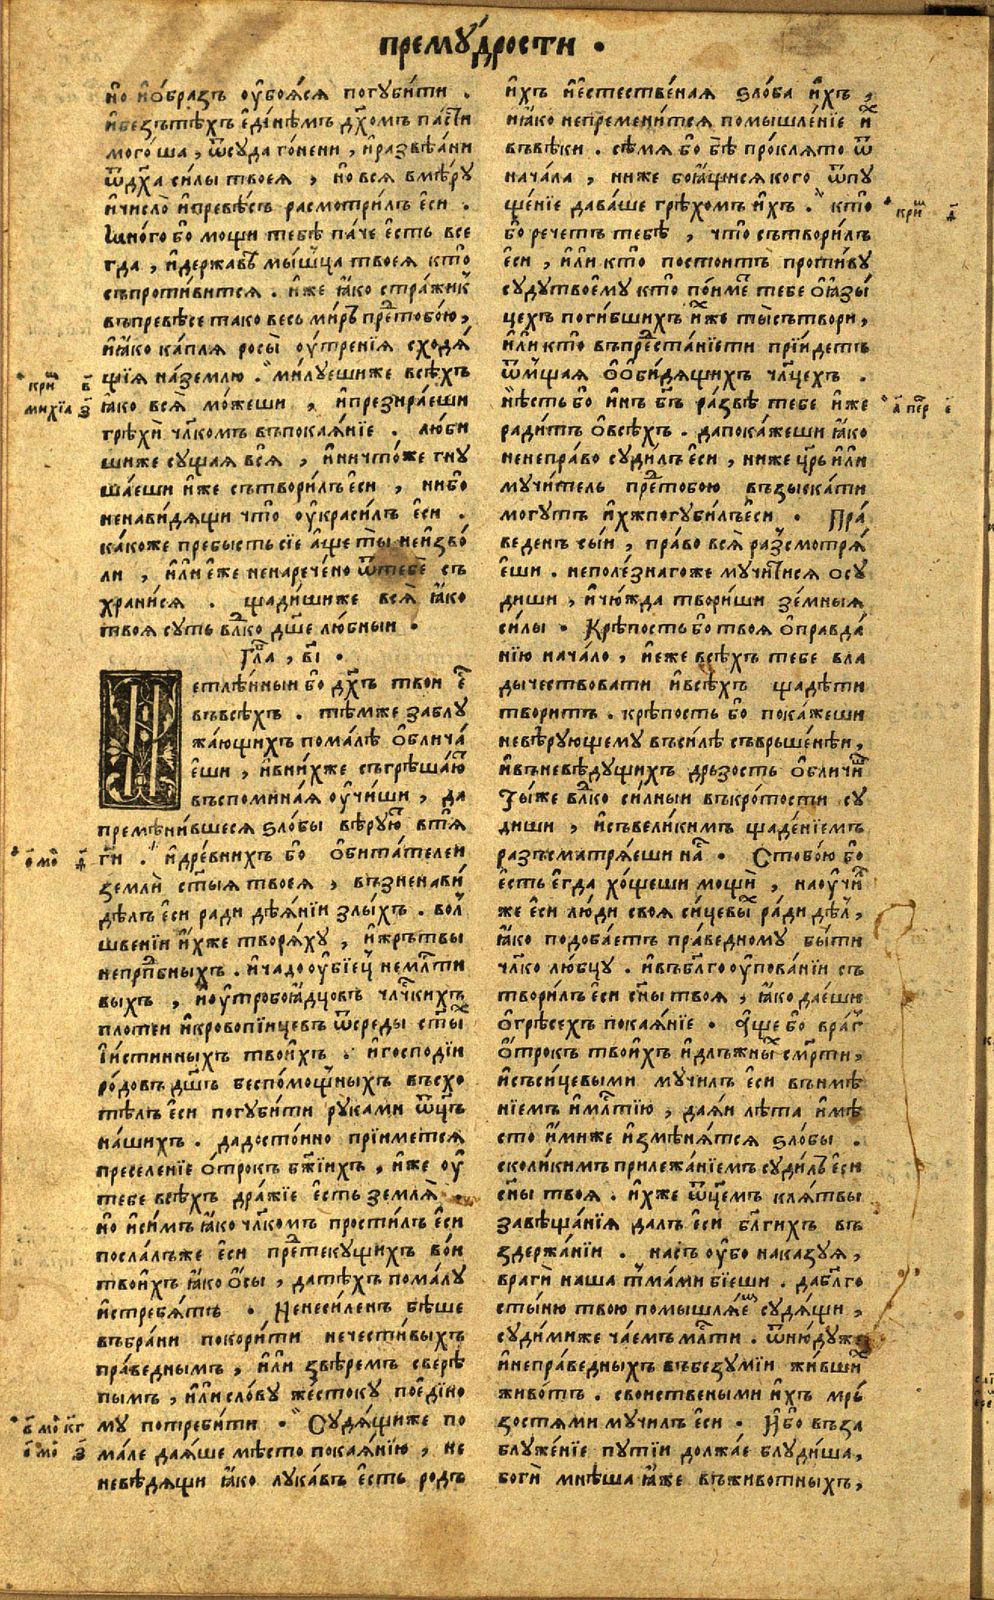 премꙋ́дрости .
но и҆ ѡ҆́бразъ ᲂу҆боѧ́сѧ погꙋби́ти .
и҆безътѣ́хъ е҆ди́нѣмъ дх҃омъ па́сти
могоша , ѿсꙋда гоне́ни , и҆развѣ́ани
ѿдх҃а си́лы твоеѧ̀ , но всѧ вмѣ́рꙋ
и҆число̀ и҆превѣ́съ расмотри́лъ е҆си .
Мно́го бо мощи тебѣ̀ па́че е҆сть все
гда , и҆держа́вѣ мы́шца твоеѧ кто̀
съпроти́витсѧ . и҆́же ꙗ҆́ко стра́жикъ
въпревѣ́се тако весь ми́ръ пре́тобо́ю ,
и҆ꙗ҆́ко ка́плѧ росы̀ ᲂу҆́тренїѧ сходѧ́
щїѧ на́землю . ми́лꙋешиже всѣ́хъ
ꙗ҆́ко всѧ̀ мо́жеши , и҆презира́еши
грѣхѝ чл҃комъ въпокаѧ́нїе . лю́би
шиже сꙋщаѧ всѧ̀ , и҆ничто́же гнꙋ
ша́еши и҆же сътвори́лъ е҆си , ни бо̀
ненави́дѧщи что̀ ᲂу҆краси́лъ е҆си .
ка́коже пребысть сїе а҆́ще ты̀ неи҆зво́
ли , и҆лѝ е҆́же ненарече́но ѿтебѐ съ
храни́сѧ . щади́шиже всѧ̀ ꙗ҆́ко
твоѧ сꙋть влⷣко дш҃е лю́бныи .
Гла̀ , в҃і .
Нетлѣ́нныи бо дх҃ъ твои е҆сть
въвсѣ́хъ . тѣ́мже заблꙋ
жа́ющихъ пома́лѣ ѡ҆блича́
е҆ши , и҆вни́хже съгрѣша́ю
въспомина́ѧ ᲂу҆чи́ши , да
премѣни́вшесѧ ѕло́бы вѣ́рꙋю втѧ̀
гⷭ҇и . и҆дре́внихъ бо ѡ҆бита́телеи
землѝ ст҃ыѧ твоеѧ , възненави́
дѣлъ е҆си ради дѣѧ́нїи злы́хъ . вол
шве́нїи и҆́хже творѧ́хꙋ , и҆жрътвы
непрⷣбныхъ . и҆чадо ᲂу҆бїец немлⷭ҇ти
выхъ , и҆ᲂу҆тробоꙗ҆дцовъ чл҃чкихъ
пло́теи и҆кровопїи́цевъ ѿсреды ст҃ы
и҆́стинныхъ твои́хъ . и҆господїи
родо́въ дш҃ъ беспо́мощныхъ въсхо
тѣ́лъ е҆си погꙋби́ти рꙋками ѿц҃ъ
на́шихъ . дадосто́ино прїи́метсѧ
преселе́нїе ѻ҆́трокъ бж҃їихъ , и҆́же ᲂу҆
тебе всѣ́хъ дра́жїе е҆сть землѧ̀
но и҆си́мъ ꙗ҆́ко чл҃комъ прости́лъ е҆си
посла́лъже е҆си пре́текꙋщихъ во́и
твои́хъ ꙗ҆́ко ѻ҆́сы , датѣ́хъ пома́лꙋ
и҆стребѧ́тъ . Ненеси́ленъ бѣ́ше
въбра́ни покори́ти нечести́выхъ
пра́веднымъ , и҆лѝ звѣре́мъ свере́
пымъ , и҆лѝ сло́вꙋ же́стокꙋ пое҆ди́но
мꙋ потреби́ти . Сꙋдѧ́щиже по
ма́ле даѧ́ше мѣсто покаѧ́нїю , не
невѣ́дѧщи ꙗ҆́ко лꙋка́въ е҆сть родъ
и҆хъ и҆е҆стестве́наѧ ѕло́ба и҆хъ ,
и҆ꙗ҆́ко непремени́тсѧ помышле́нїе и҆
въвѣ́ки . сѣ́мѧ бо бѣ̀ про́клѧто ѿ
нача́ла , ниже боꙗ҆́щисѧ кого ѿпꙋ
ще́нїе дава́ше грѣхо́мъ и҆хъ . кто̀
бо рече́тъ тебѣ̀ , что̀ сътвори́лъ
е҆си , и҆лѝ кто̀ постои́тъ проти́вꙋ
сꙋдꙋтвое́мꙋ кто̀ по́име тебе ѡ҆ꙗ҆зы́
цехъ поги́бшихъ и҆́хже ты̀сътвори ,
и҆лѝ кто̀ въпре́станїети прїи́детъ
ѿмща́ѧ ѡ҆ѡ҆би́дѧщихъ чл҃цехъ .
Нѣ́сть бо и҆нъ бг҃ъ ра́звѣ тебе и҆́же
ради́тъ ѡ҆всѣ́хъ . дапока́жеши ꙗ҆́ко
ненепра́во сꙋди́лъ е҆си , ниже цр҃ь и҆лѝ
мꙋчи́тель пре́тобою възыска́ти
могꙋтъ и҆́хжпогꙋби́лъе҆си . Пра́
веденъ сы́и , пра́во всѧ̀ разсмотрѧ́
е҆ши . неполе́знагоже мꙋчи́тисѧ осꙋ
диши , и҆чю́жда твори́ши зе́мныѧ
си́лы . Крѣ́пость бо твоѧ ѡ҆правда́
нїю нача́ло , и҆еже всѣ́хъ тебе вла
дычествовати и҆всѣ́хъ щадѣ́ти
твори́тъ . крѣ́пость бо пока́жеши
невѣ́рꙋющемꙋ въси́лѣ съвръше́нѣи ,
и҆въневѣ́дꙋщихъ дръзость ѡ҆бличи́
Ты́же влⷣко си́лныи въкро́тости сꙋ
диши , и҆съвели́кимъ щаде́нїемъ
разъсматрѧ́еши на . Стобо́ю бо
е҆сть е҆гда хо́щеши мощѝ , наᲂу҆чи́
же е҆си лю́ди своѧ си́цевы ра́ди дѣлъ ,
ꙗ҆́ко подоба́етъ пра́ведномꙋ быти
чл҃ко лю́бцꙋ . и҆въбл҃го ᲂу҆пова́нїи съ
твори́лъ е҆си сн҃ы твоѧ , ꙗ҆́ко дае́ши
ѡ҆грѣсе́хъ покаѧ́нїе . А҆́ще бо враг
ѻ҆́трокъ твои́хъ и҆длъжны́ смр҃ти ,
и҆съси́цевыми мꙋчи́лъ е҆си внимѣ
нїемъ и҆млⷭ҇тїю , даѧ́и лѣ́та и҆мѣ́
сто и҆́миже и҆змѣнѧ́тсѧ ѕло́бы .
ско́ликимъ прилежа́нїемъ сꙋди́лъ е҆си
сн҃ы твоѧ . и҆́хже ѿц҃ем клѧ́твы
завѣща́нїѧ далъ е҆си бл҃ги́хъ въ
здержа́нїи . насъ ᲂу҆̀бо наказꙋѧ ,
врагѝ наша тма́ми бїе́ши . дабл҃го
сты́ню твою помышлѧ́е сꙋдѧ́щи ,
сꙋди́миже ча́емъ млⷭ҇ти . ѿню́дꙋже
и҆непра́ведныхъ въбезꙋ́мїи живши
живо́тъ . свои́ствеными и҆́хъ мръ
зостѧ́ми мꙋчи́лъ е҆си . И҆бо въза
блꙋже́нїе пꙋтїи должа́е блꙋди́ша ,
богѝ мнѣ́ша ꙗ҆́же въживо́тныхъ ,